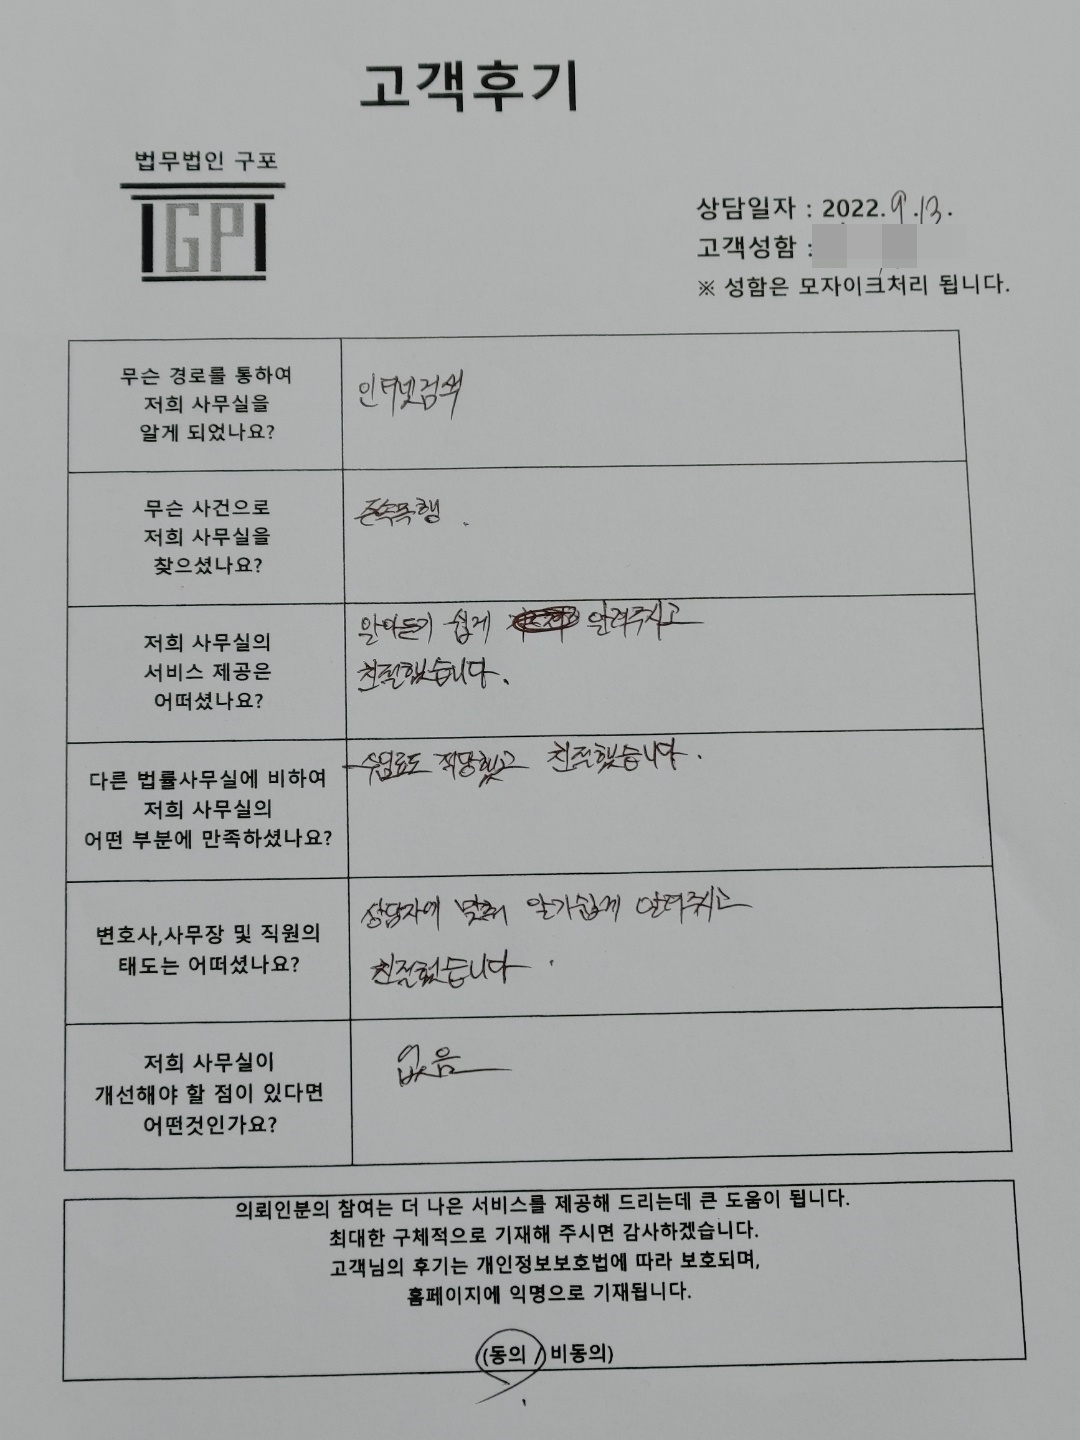 고객후기
법무법인 구포
IGPI
상담일자 : 2022. 9. 13.
고객성함 :
※ 성함은 모자이크처리 됩니다.
무슨 경로를 통하여
저희 사무실을
알게 되었나요?
인터넷검색
무슨 사건으로
저희 사무실을
찾으셨나요?
존속폭행.
저희 사무실의
서비스 제공은
어떠셨나요?
알아듣기 쉽게 알려주시고
친절했습니다.
다른 법률사무실에 비하여
저희 사무실의
어떤 부분에 만족하셨나요?
수임료도 적당했고 친절했습니다.
변호사,사무장 및 직원의
태도는 어떠셨나요?
상담자에 맞춰 알기쉽게 알려주시고
친절했습니다.
저희 사무실이
개선해야 할 점이 있다면
어떤것인가요?
없음
의뢰인분의 참여는 더 나은 서비스를 제공해 드리는데 큰 도움이 됩니다.
최대한 구체적으로 기재해 주시면 감사하겠습니다.
고객님의 후기는 개인정보보호법에 따라 보호되며,
홈페이지에 익명으로 기재됩니다.
(동의 / 비동의)